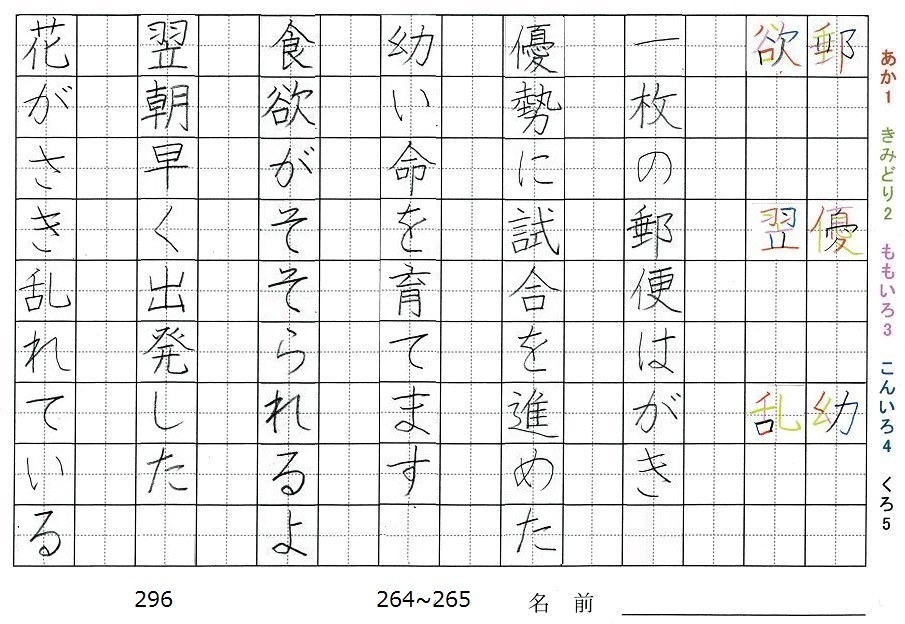 あか1 きみどり2 ももいろ3 こんいろ4 くろ5
郵 優 幼
欲 翌 乱
一枚の郵便はがき
優勢に試合を進めた
幼い命を育てます
食欲がそそられるよ
翌朝早く出発した
花がさき乱れている
296
264~265
名前